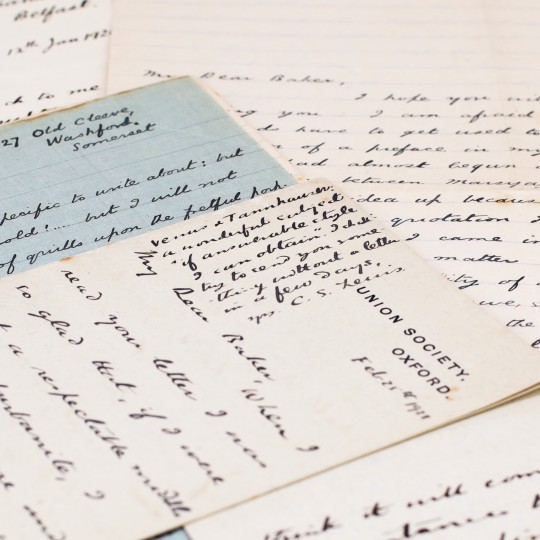 Belfast.
12th Jan 192
ck to me
My Dear Baker,
I hope you wil
ng you I am afraid
ds have to get used to
of a preface in my
ad almost begun
between Marsya
dea up because
quotation I
I came in
matter
ity of
we, s
the
27 Old Cleeve,
Washford.
Somerset
specific to write about: but
old!.... but I will not
of quills upon the fretful pork
Venus & Tannhauser
a wonderful subject
"if answerable style
I can obtain". I shall
try to send you some
thing without a letter
in a few days.
yrs. C. S. Lewis
UNION SOCIETY,
OXFORD.
Feb. 25th 1921
My Dear Baker, When I
read your letter I was
so glad that, if I were
a respectable middle
urbanite, I
and
think it will com